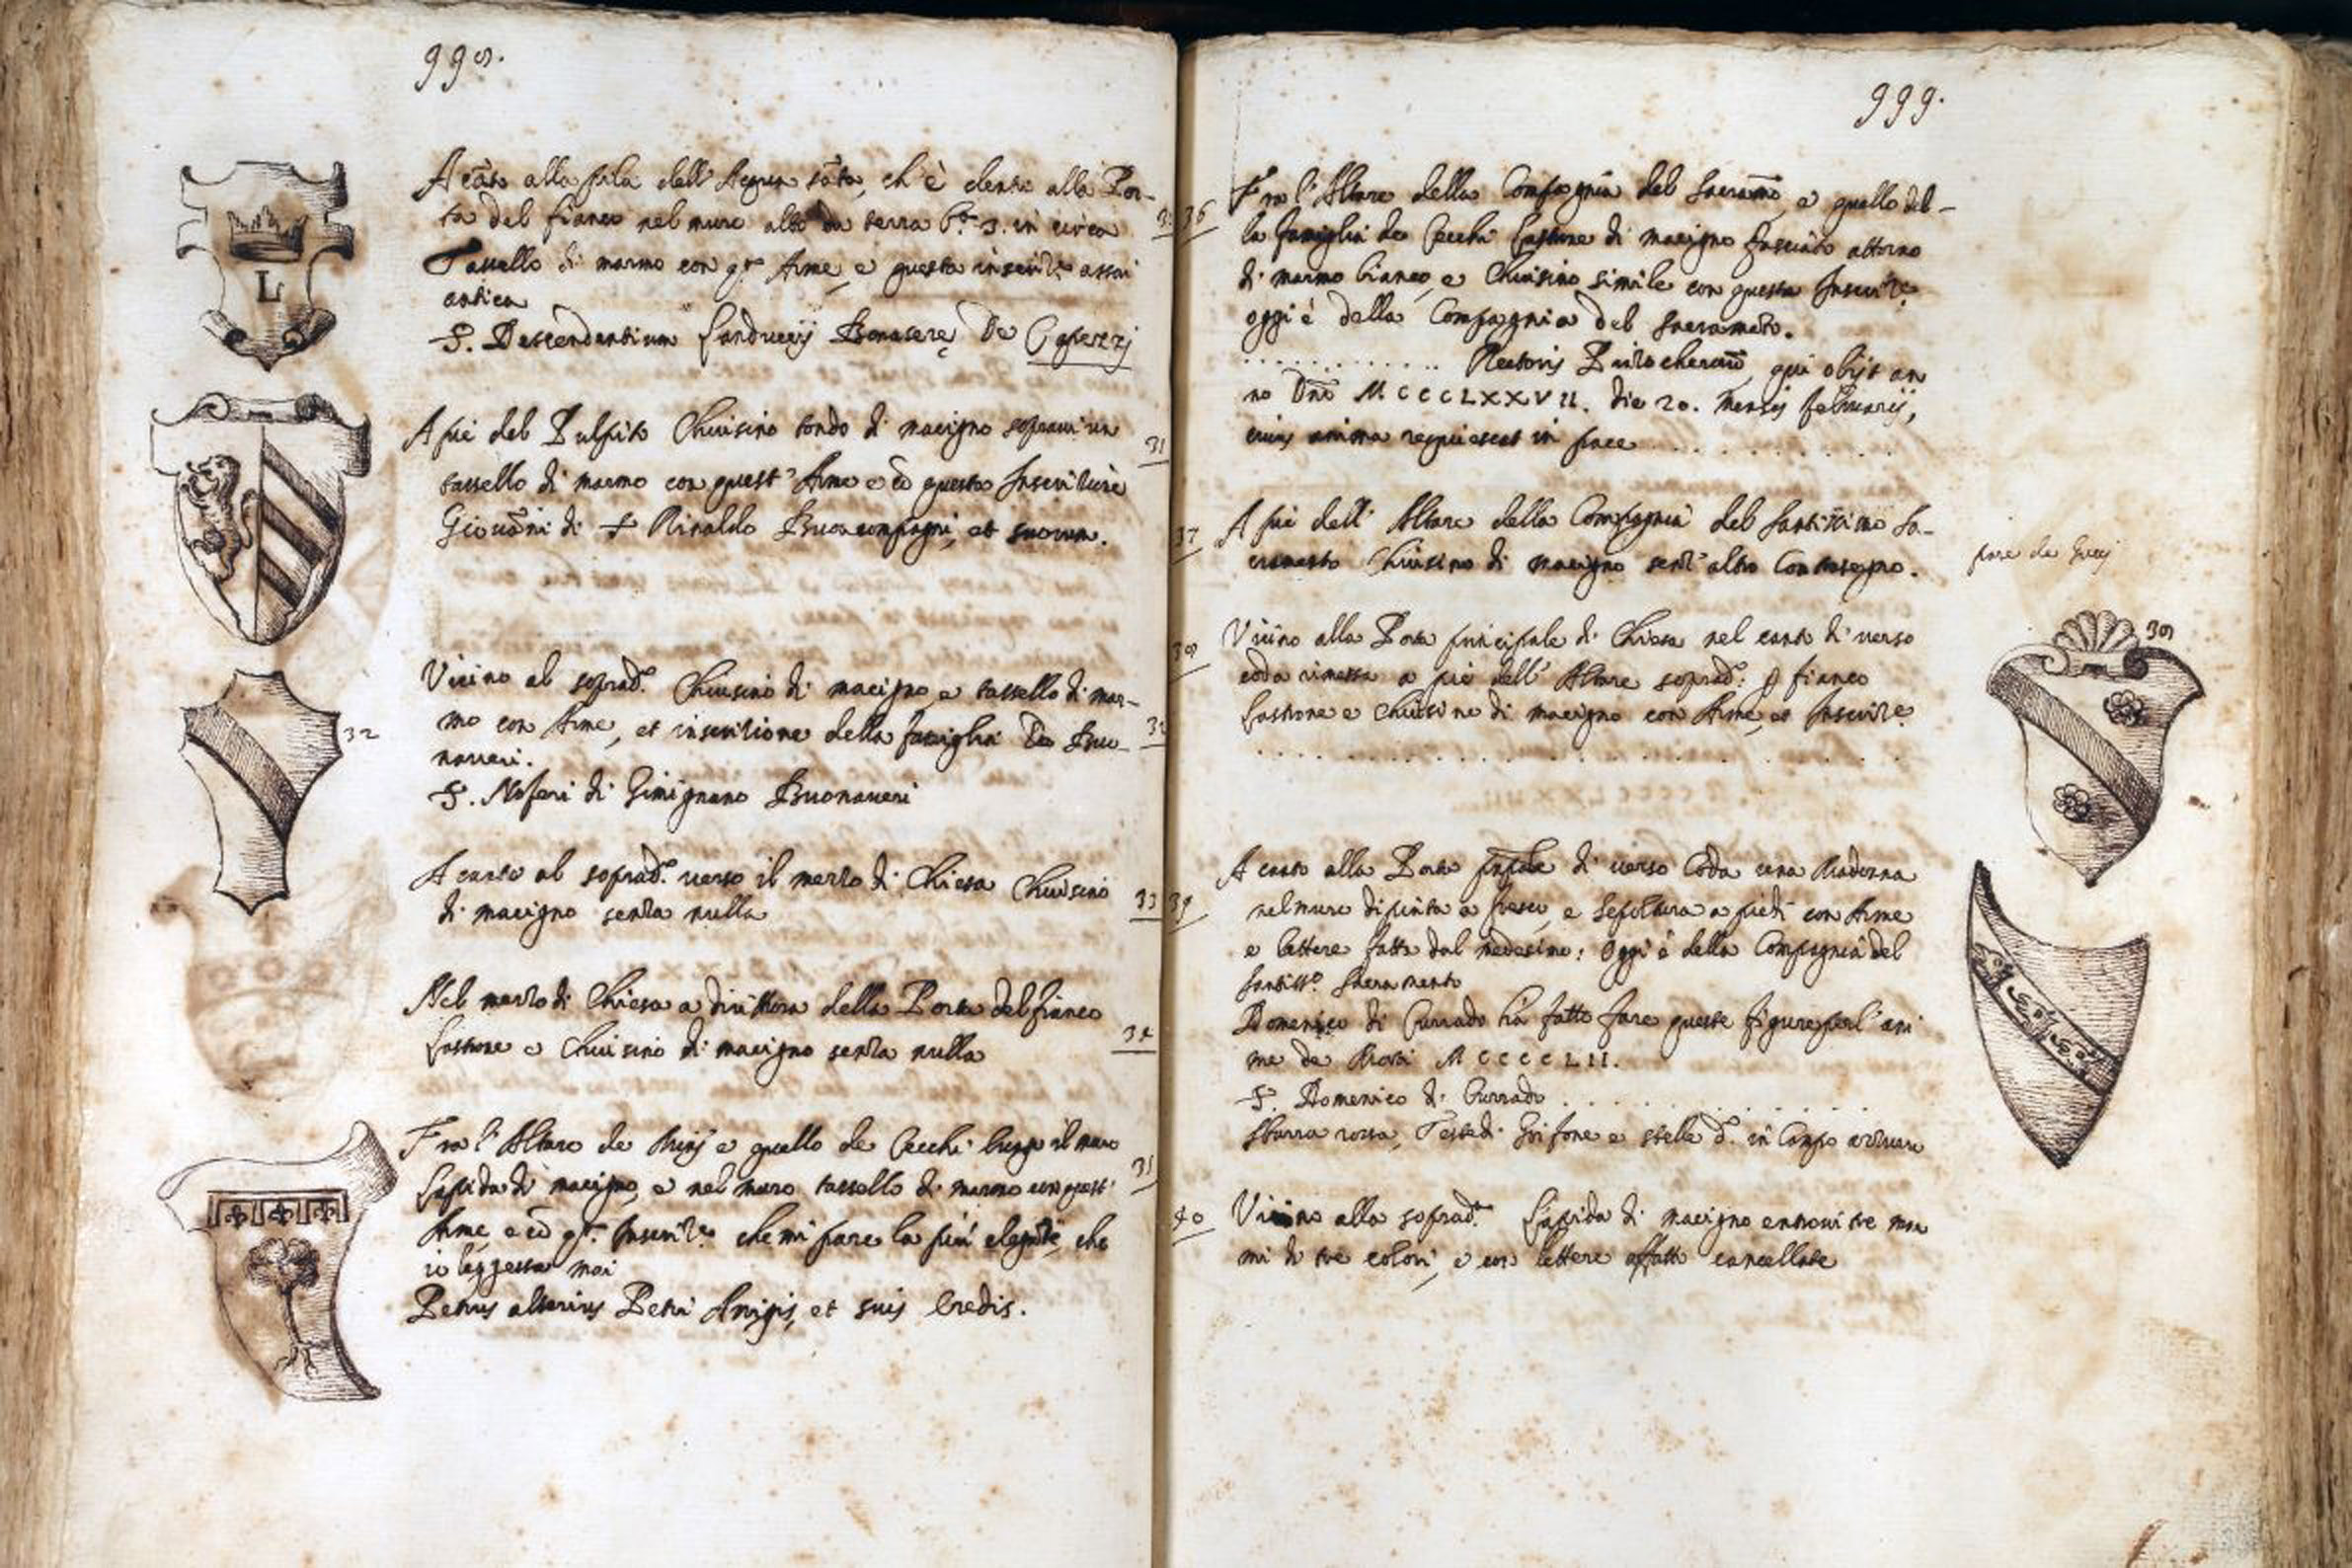 998.
A cãto alla pila dell'Acqua sãta, ch'è dentro alla Por-
ta del fianco nel muro alto da terra b.ª 3. in circa
Tassello di marmo con q.ta Arme, e questa inscriz.e assai
antica
L
S. Descendentium Landuccij Bonasere De
30
A piè del Pulpito Chiusino tondo di macigno sopravi un
tassello di marmo con quest'Arme e cõ questa Inscrizione
Giovãni di S. Rinaldo Buoncompagni, et suorum.
31
Vicino al soprad.o Chiusino di macigno, e tassello di mar-
mo con Arme, et inscritione della famiglia De Buo-
naveri.
S. Noferi di Gimignano Buonaveri
32
32
A canto al soprad.o verso il mezzo di Chiesa Chiusino
di macigno senza nulla
33
Nel mezzo di Chiesa a dirittura della Porta del fianco
Lastrone e Chiusino di macigno senza nulla
34
Fra l'Altare de e quello de Cecchi lungo il muro
Lapida di macigno, e nel muro tassello di marmo con quest'
Arme, e cõ q.ta Inscriz.e che mi pare la più elegãte, che
io leggessa mai
Petrus alterius Petri Arrigis, et suis eredis.
35
999.
36
Fra l'Altare della Compagnia del Sacramẽto, e quello del-
la famiglia de Cecchi Lastrone di macigno fasciato attorno
di marmo bianco, e Chiusino simile con questa Inscriz.e
oggi è della Compagnia del Sacramẽto.
. . . . . . . . . . . . . Rectoris qui obijt an
no Dñi MCCCLXXVII. die 20. mensis februarij,
cuius anima requiescat in pace . . . . . . . . . .
37
A piè dell'Altare della Compagnia del Santissimo Sa-
cramento Chiusino di macigno senz'altro Contrasegno.
38
Vicino alla Porta principale di Chiesa nel canto di verso
coda rimessa a piè dell'Altare soprad.o p fianco
Lastrone e Chiusino di macigno con Arme, et Inscriz.e
. . . . . . . . . . . . . . . .
38
39
A canto alla Porta prĩpale di verso Coda una Madonna
nel muro dipinta a fresco, e Sepoltura a piedi con Arme
e lettere fatta dal medesimo: Oggi è della Compagnia del
Santiss.o Sacramento
Domenico di Currado hà fatto fare queste figure per l'ani
me de Morti MCCCCLII.
S. Domenico di Currado . . . . . . . . . .
Sbarra rossa, Teste di Grifone e stelle d'. in Campo azzurro
40
Vicino alla soprad.ta Lapida di macigno entrovi tre mar
mi di tre colori, e con lettere affatto cancellate